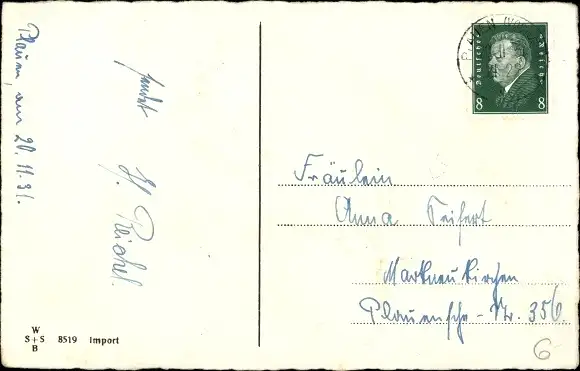 Plauen, am 20.11.31.
sendet
E. Reichel.
PLAUEN (VOGTL
Deutsches Reich
8 8
Fräulein
Anna Seifert
Markneukirchen
Plauensche-Str. 356.
W
S+S 8519 Import
B
6